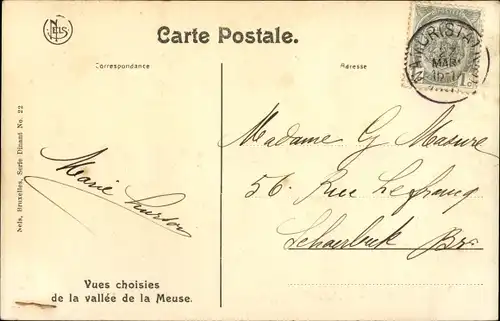 NELS
Carte Postale.
Correspondance
Adresse
NAMUR (STATION)
MAR
1911
1
Madame G Masure
56. Rue Lefrancq
Schaerbeek Brx
Marie
Nels, Bruxelles, Serie Dinant No. 22
Vues choisies
de la vallée de la Meuse.